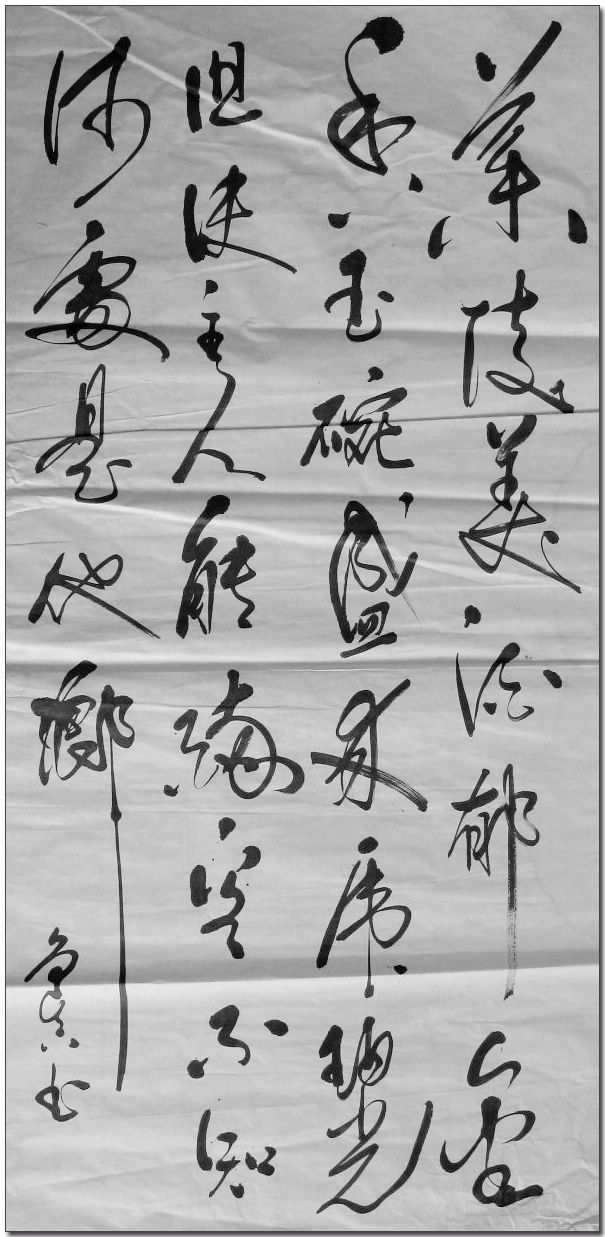 蘭陵美酒郁金
香玉碗盛來琥珀光
但使主人能醉客不知
何處是他鄉
书